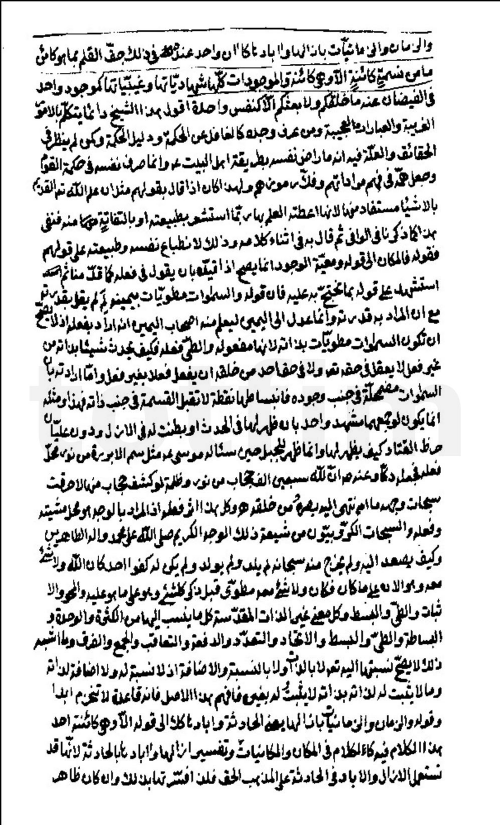 والزمان والزمانيات بازالها وابادها كان واحد عنده في ذلك جف القلم بما هو كائن
ما من نسمة كائنة الا وهي كائنة والموجودات كلها شهادياتها وغيبياتها كموجود واحد
في الفيضان عنه ما خلقكم ولا بعثكم الا كنفس واحدة اقول هذا الشيخ دائما يتكلم بالامور
الغريبة والعبارات العجيبة ومن عرف وجده كالغافل عن الحكمة ودليل الحكمة وكمن لم ينظر في
الحقائق والعلة فيه انه ما راض نفسه بطريقة اهل البيت عم وانما صرف نفسه في حكمة القوم
وجعل همه في فهم مراداتهم ولهذا كان اذا قال بقولهم مثل ان علم الله تع القديم
بالاشياء مستفاد منها لانها اعطته العلم بها ربما استشعر بطبيعته او بالتفاتة منه فنفى
هذا كما ذكرنا في الوافي ثم قال به في اثناء كلامه وذلك لانطباع نفسه وطبيعته على قولهم
فقوله فالمكان الى قوله ومعية الوجود انما يصح اذا قيده بان يقول في فعله كما قدمنا ثم انه
استشهد على قوله بما يحتج به عليه فان قوله والسموات مطويات بيمينه لم يقل بقدرته
مع ان المراد به قدرته وانما عدل الى اليمين ليعلم منه اصحاب اليمين انه اراد بفعله اذ لا يصح
ان تكون السموات مطويات بذاته لانها مفعوله والطي فعله فكيف يحدث شيئا بذاته من
غير فعل لا يعقل في حقه تع ولا في حق احد من خلقه ان يفعل فعلا بغير فعل واما ارادته بان
السموات مضمحلة في جنب وجوده فانبساطها نقطة لا تقبل القسمة في جنب ذاته فهذا ومثله
انما يكون لو جمعهما مشهد واحد بان ظهر لها في الحدث او بطنت له في الازل ودون عليان
خرط القتاد كيف يظهر لها وانما ظهر للجبل حين سئله موسى عم مثل سم الابرة من نور محل
فعله فجعله دكا وعنه ص ان لله سبعين الف حجاب من نور وظلمة لو كشف حجاب منها لاحرقت
سبحات وجهه ما انتهى اليه بصره من خلقه وكل هذا اثر فعله اذ المراد بالوجه هو محل مشيته
وفعله والسبحات الكروبيون من شيعة ذلك الوجه الكريم صلى الله على محمد واله الطاهرين
وكيف يصعد اليه ولم يخرج منه سبحانه لم يلد ولم يولد ولم يكن له كفوا احد كان الله ولا شئ
معه وهو الان على ما كان فكان ولا شئ معه مطوي قبل ذكر كل شئ وهو على ما هو عليه والمحو والا
ثبات والطي والبسط وكل معنى غير الذات المقدسة كل ما ينسب اليها من الكثرة والوحدة و
البساطة والطي والبسط والاتحاد والتعدد والدفعة والتعاقب والجمع والفرق وما اشبه
ذلك لا يصح نسبتها اليه تع لا بالذات ولا بالنسبة والاضافة اذ لا نسبة له ولا اضافة لذاته
وما لا يثبت له لذاته بذاته لا يثبت له بغيره فافهم هذا الاصل فانه قاعدة لا تنخرم ابدا
وقوله والزمان والزمانيات بازالها يعني الحادثة وابادها كذلك الى قوله الا وهي كائنة احد
هذا الكلام فيه كالكلام في المكان والمكانيات وتفسير ازالها وابادها بالحادثة لانها قد
تستعمل الازال والاباد في الحادثة على المذهب الحق فلذا افسرتها بذلك وان كان ظاهر